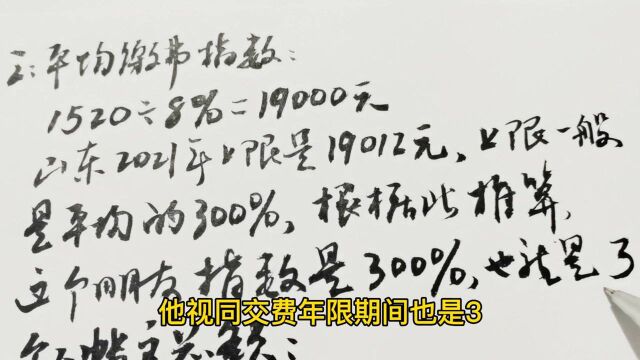 2:平均缴费指数:
1520÷8%=19000元
山东2021年上限是19012元,上限一般
是平均的300%,根据此推算,
这个朋友指数是300%,也就是3
他视同交费年限期间也是3